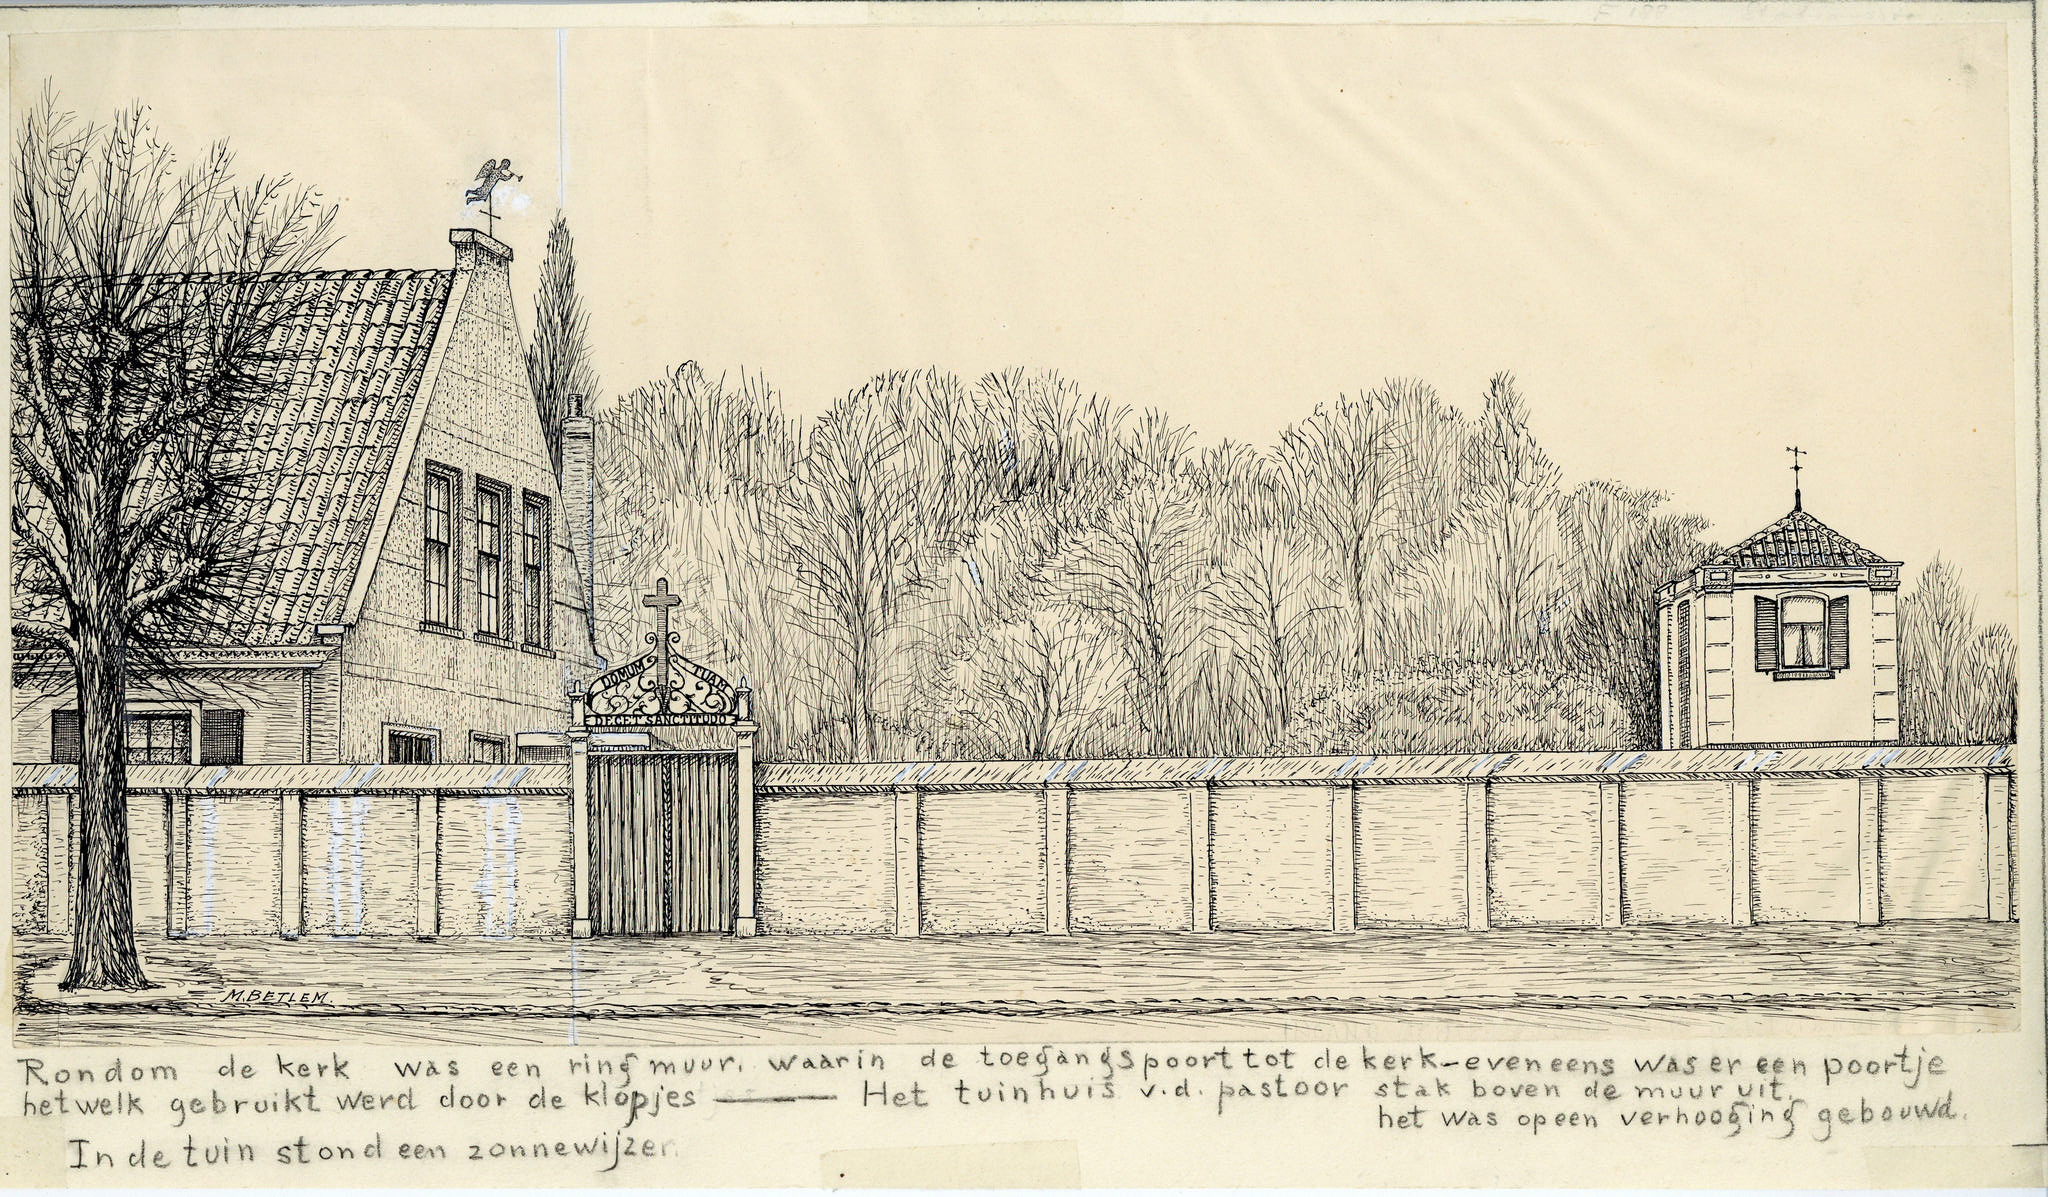 DOMUM TUAM
DECET SANCTITUDO
M. BETLEM.
Rondom de kerk was een ringmuur, waarin de toegangspoort tot de kerk – eveneens was er een poortje
hetwelk gebruikt werd door de klopjes ——— Het tuinhuis v.d. pastoor stak boven de muur uit.
het was op een verhooging gebouwd.
In de tuin stond een zonnewijzer.